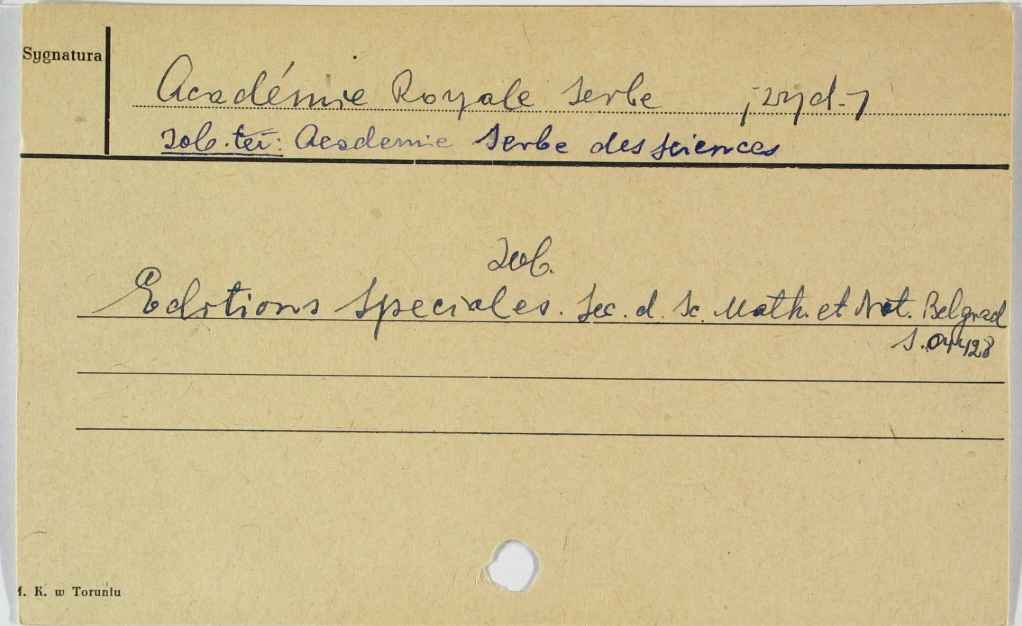 Sygnatura
Académie Royale Serbe
zob. też: Academie Serbe des sciences
Zob.
Editions Speciales. Sec. d. Sc. Math. et Nat. Belgrad
S. 04428
M. K. w Toruniu